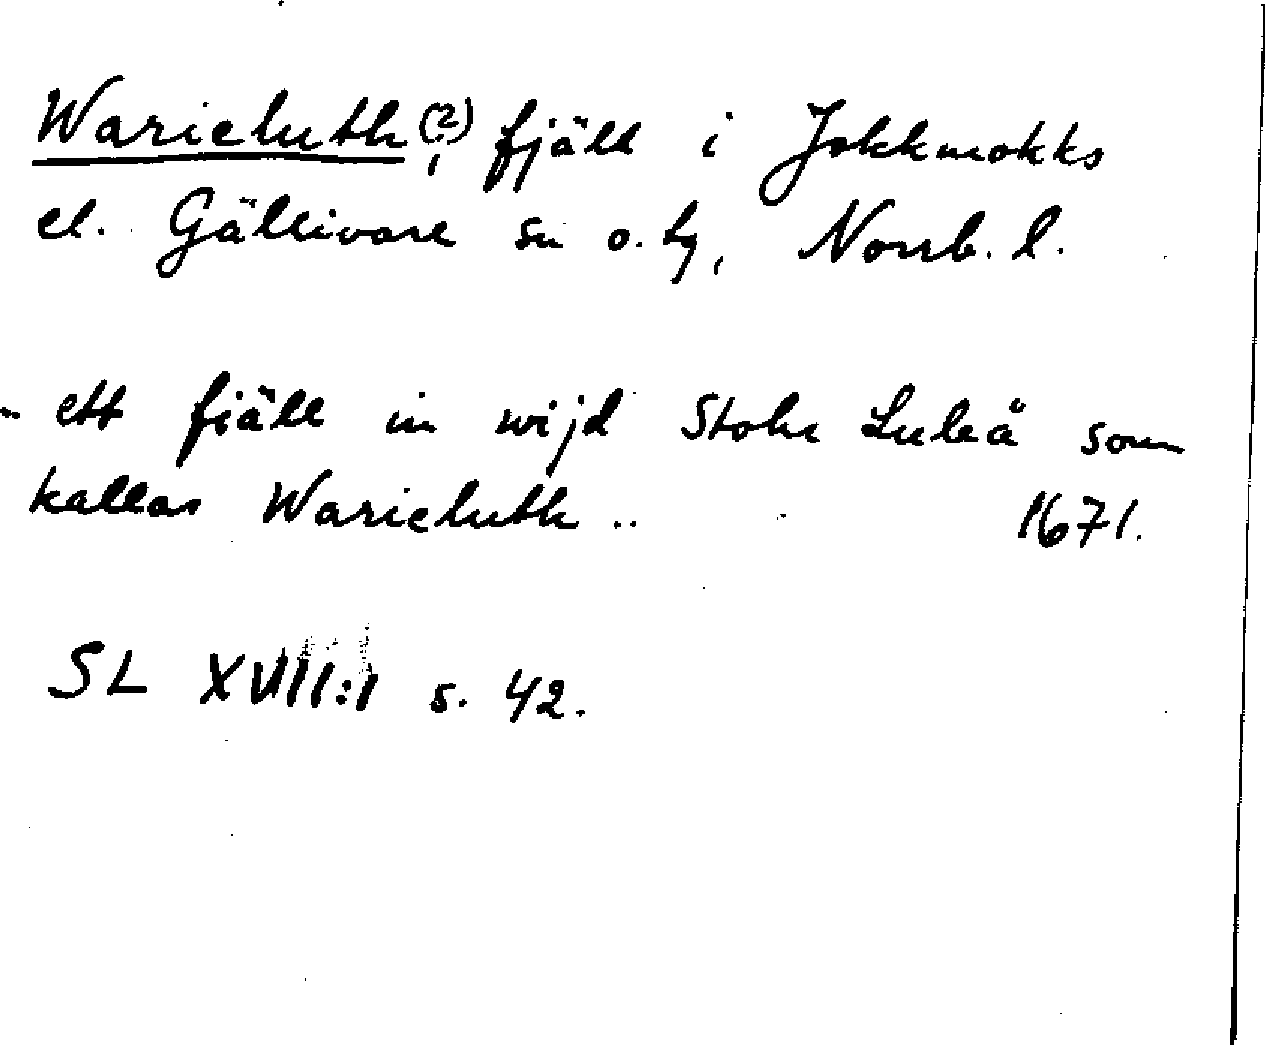 Warieluth (?), fjäll i Jokkmokks
el. Gällivare sn o. hg, Norrb. l.
.. ett fjäll in wijd Stohr Luleå som
kallas Warieluth .. 1671.
SL XVII:1 s. 42.